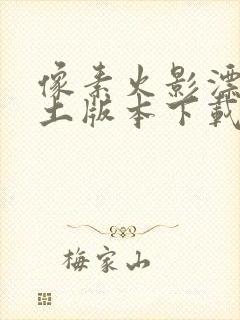 像素火影漂
土版本下载
梅家山